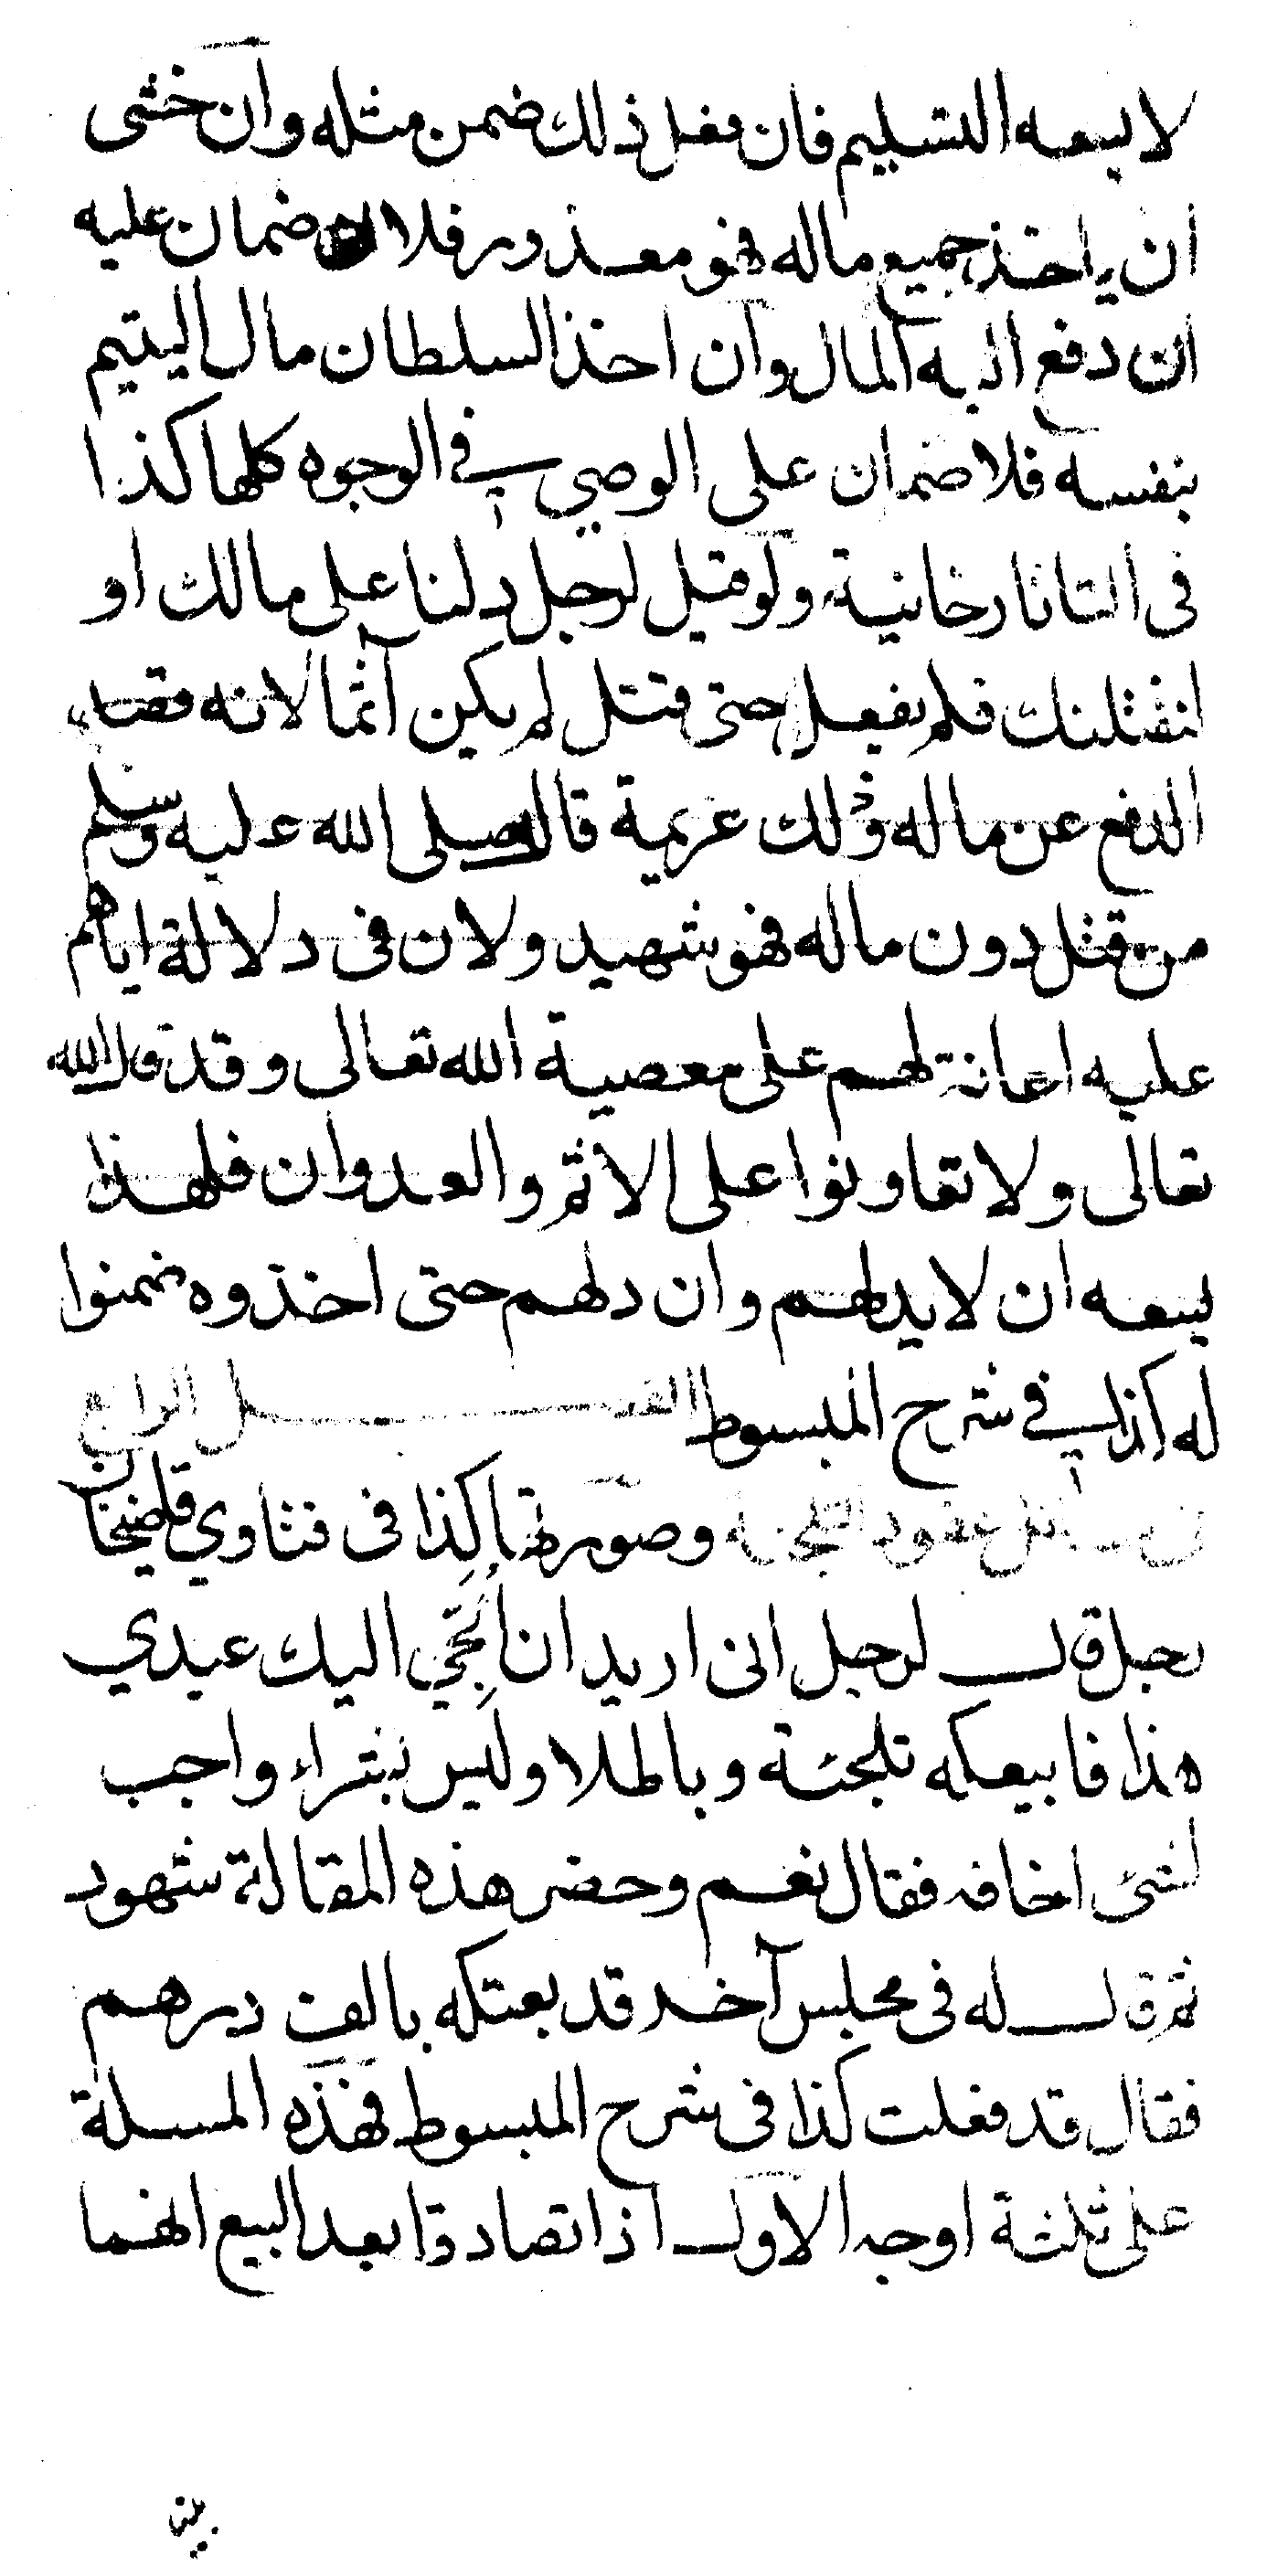 لا يسعه التسليم فان فعل ذلك ضمن مثله وان خشى
ان ياخذ جميع ماله فهو معذور فلا ضمان عليه
ان دفع اليه المال وان اخذ السلطان مال اليتيم
بنفسه فلا ضمان على الوصي في الوجوه كلها كذا
فى التاتارخانية ولو قيل لرجل دلنا على مالك او
لنقتلنك فلم يفعل حتى قتل لم يكن آثما لانه قصد
الدفع عن ماله وذلك عزيمة قال صلى الله عليه وسلم
من قتل دون ماله فهو شهيد ولان فى دلالة اياهم
عليه اعانة لهم على معصية الله تعالى وقد قال الله
تعالى ولا تعاونوا على الاثم والعدوان فلهذا
يسعه ان لا يدلهم وان دلهم حتى اخذوه ضمنوا
له كذا في شرح المبسوط الفصل الرابع
فى مسائل عقود التلجئه وصورتها كذا فى فتاوي قاضيخان
رجل قال لرجل انى اريد ان ألجي اليك عبدي
هذا فابيعكه تلجئة وبالملا وليس بشراء واجب
لشئ اخافه فقال نعم وحضر هذه المقالة شهود
ثم قال له فى مجلس آخر قد بعتكه بالف درهم
فقال قد فعلت كذا فى شرح المبسوط فهذه المسلة
على ثلثة اوجه الاول اذا تصادقا بعد البيع انهما